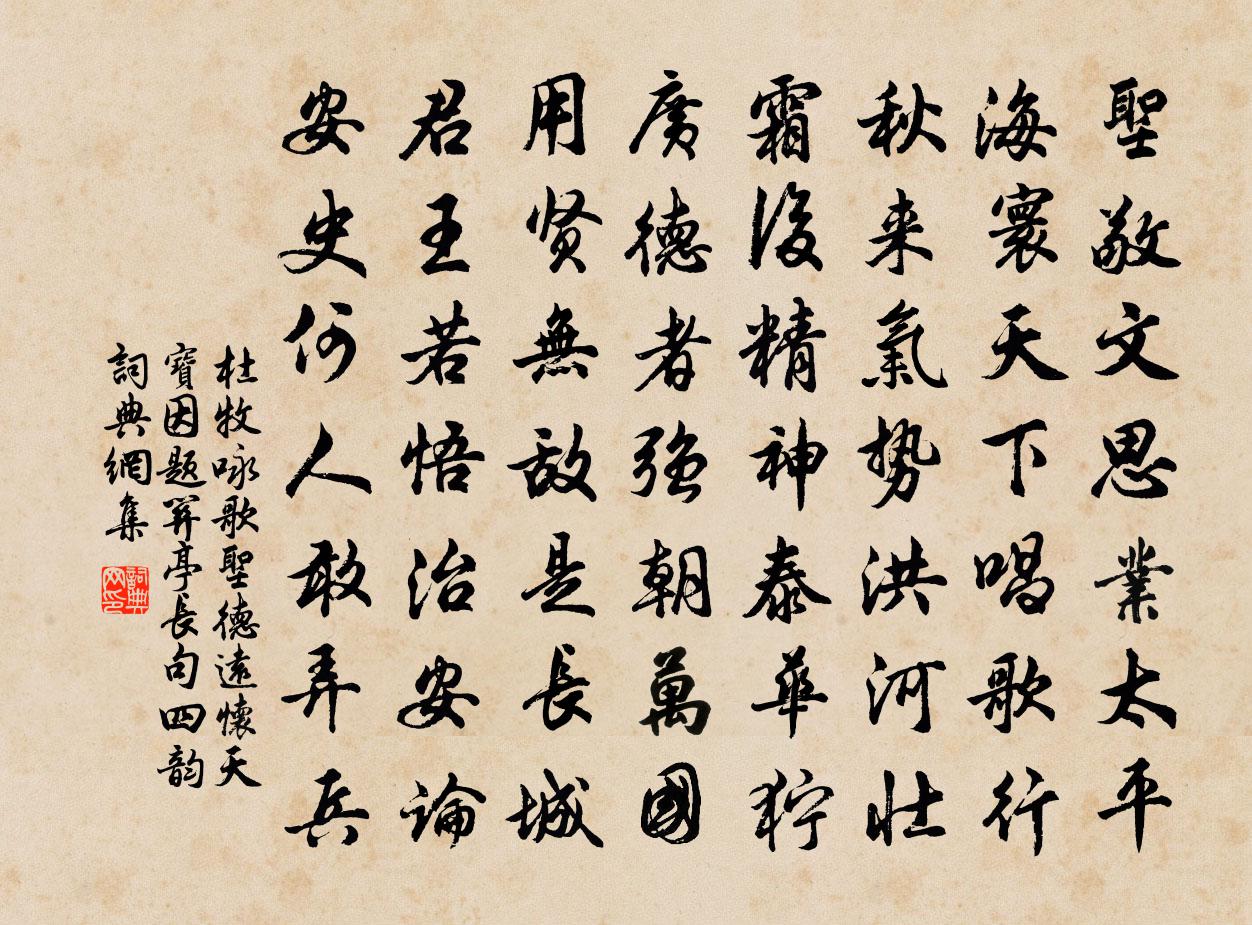 聖敬文思業太平
海寰天下唱歌行
秋来氣勢洪河壮
霜後精神泰華狞
廣德者強朝萬國
用贤無敌是長城
君王若悟治安論
安史何人敢弄兵
杜牧咏歌聖德遠懷天
寶因题關亭長句四韵
詞典網集
詞典网印